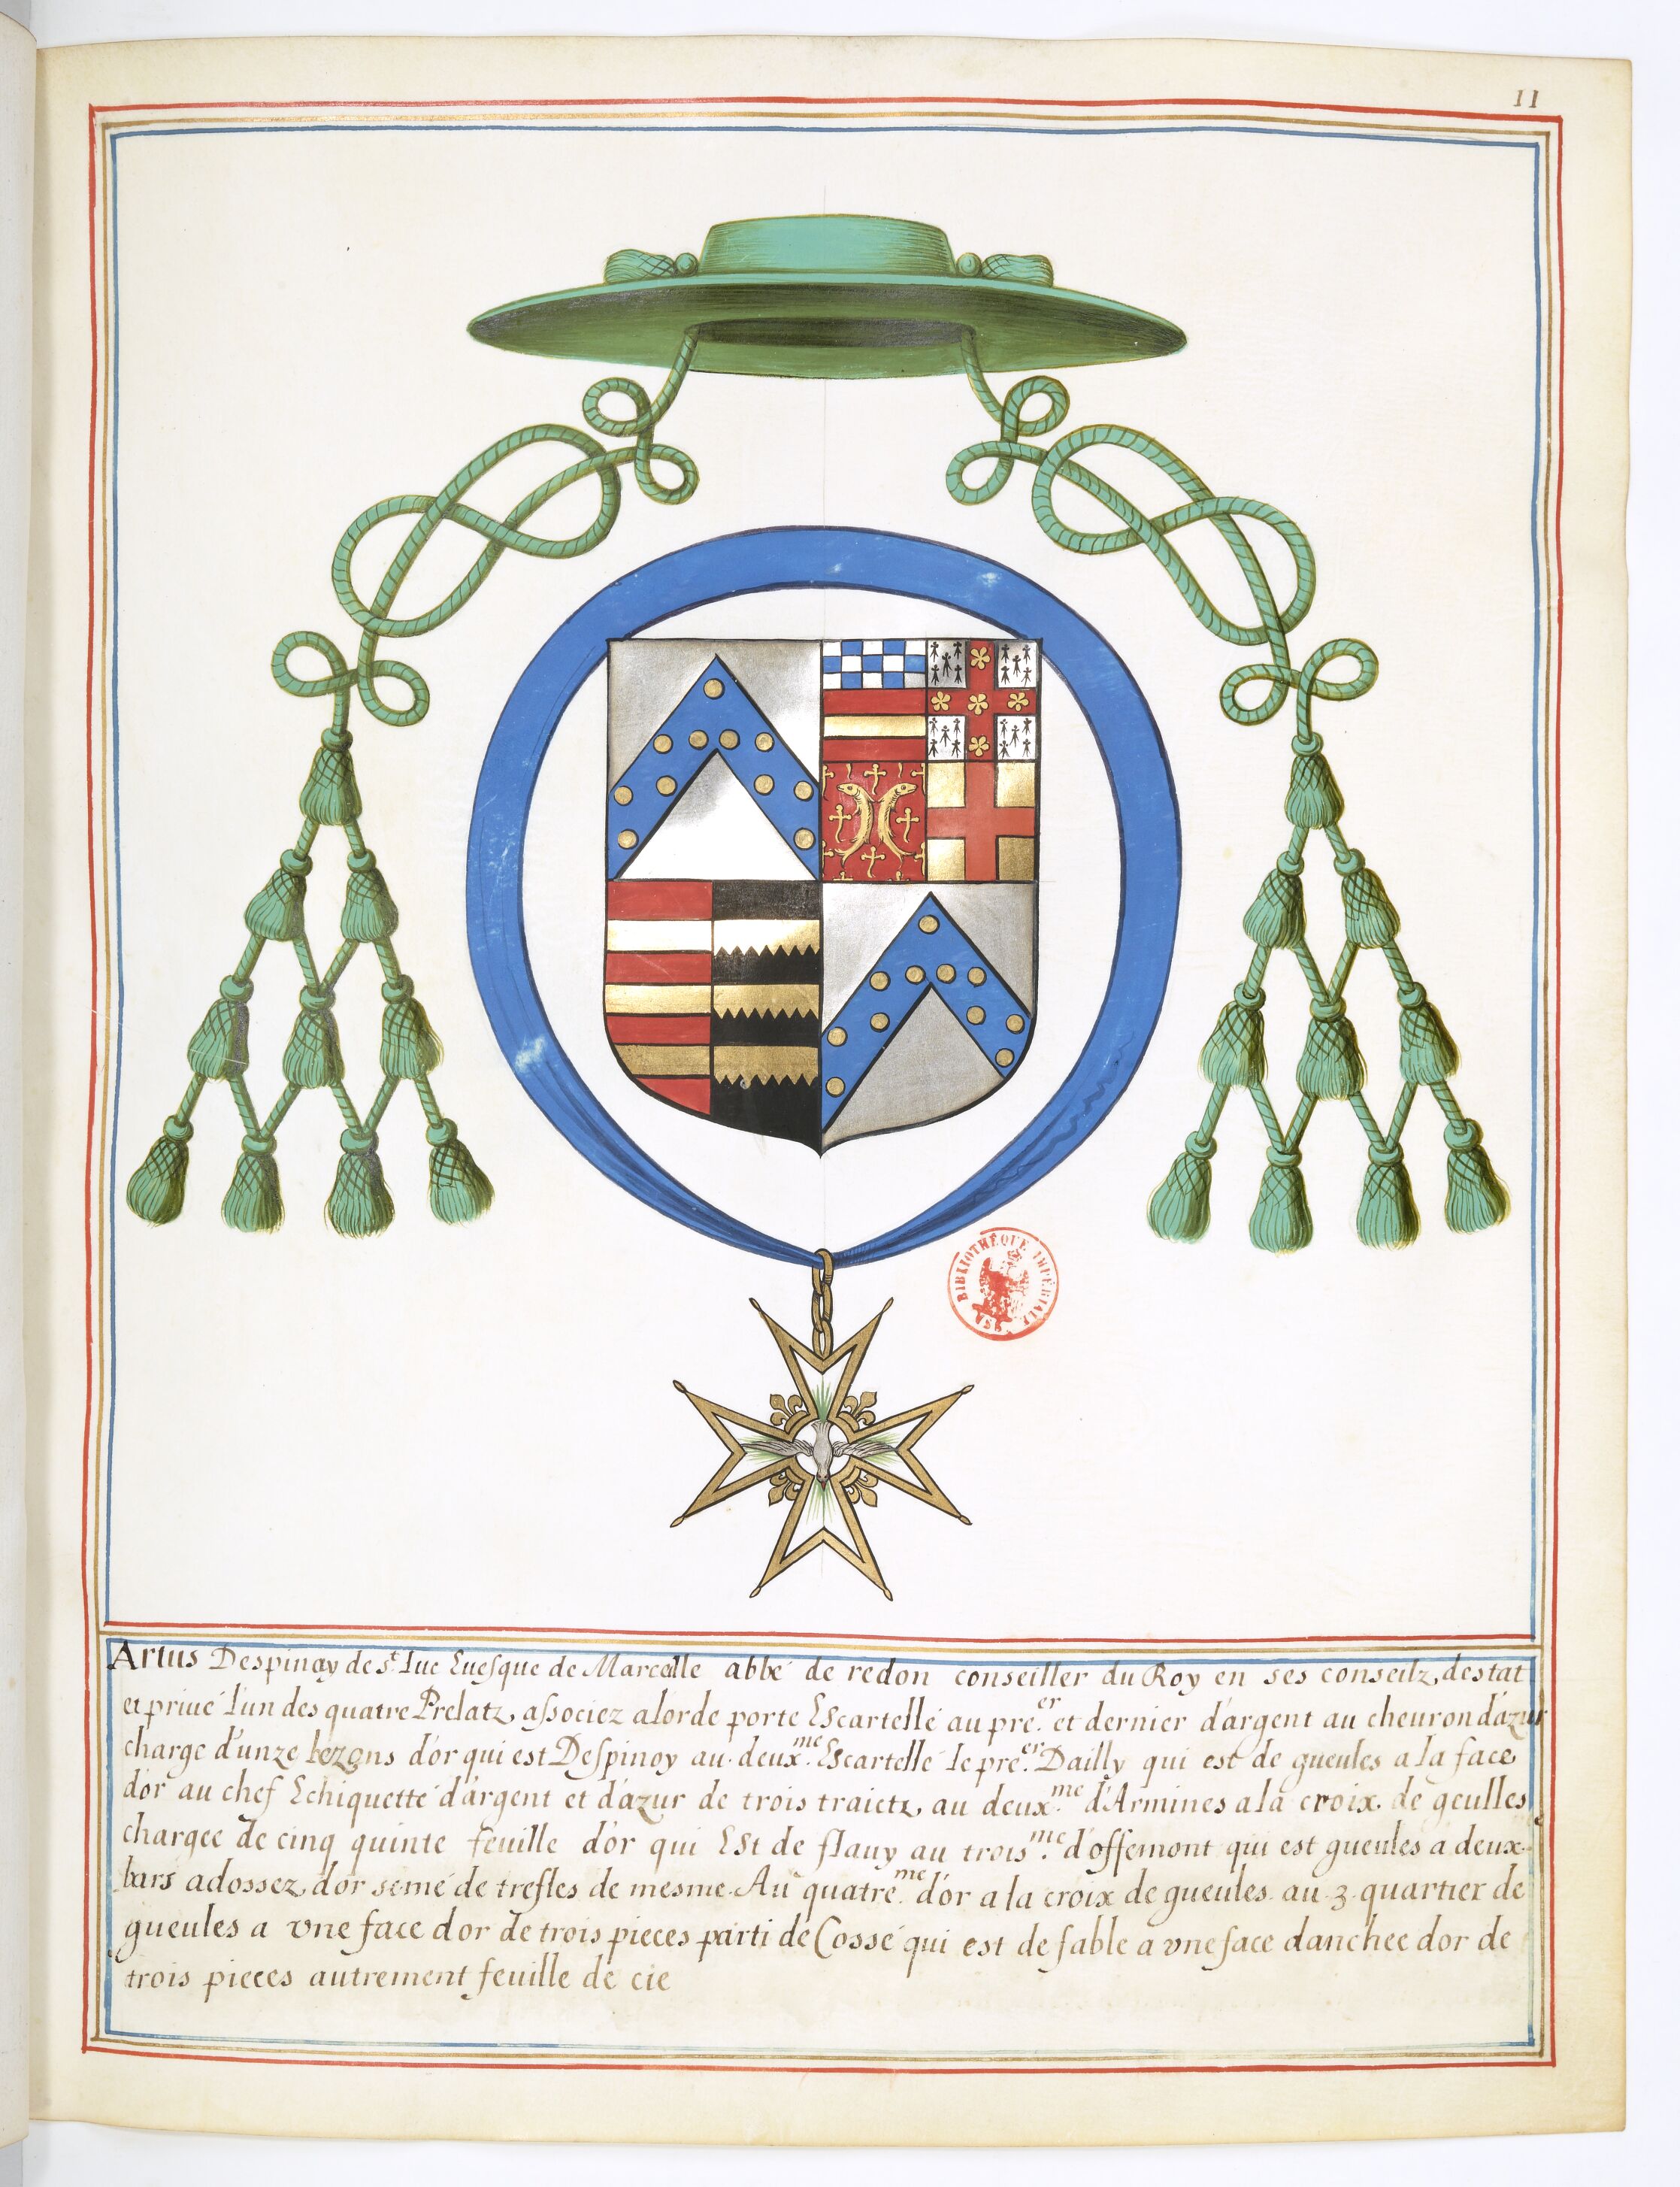 11
BIBLIOTHÈQUE IMPÉRIALE
Artus Despinay de St. Luc Euesque de Marcelle abbé de redon conseiller du Roy en ses conseilz, destat
et priué l'un des quatre Prelatz, associez alorde porte Escartellé au pre.er et dernier d'argent au cheuron d'azur
charge d'unze bezans d'or qui est Despinoy au deux.me Escartellé le pre.er Dailly qui est de gueules a la face
d'or au chef Echiquetté d'argent et d'azur de trois traictz, au deux.me d'Armines a la croix de geulles
chargee de cinq quinte feuille d'or qui Est de flauy au trois.me d'offemont qui est gueules a deux
bars adossez d'or semé de trefles de mesme Au quatre.me d'or a la croix de gueules au 3 quartier de
gueules a vne face d'or de trois pieces parti de Cossé qui est de sable a vne face danchee dor de
trois pieces autrement feuille de cie